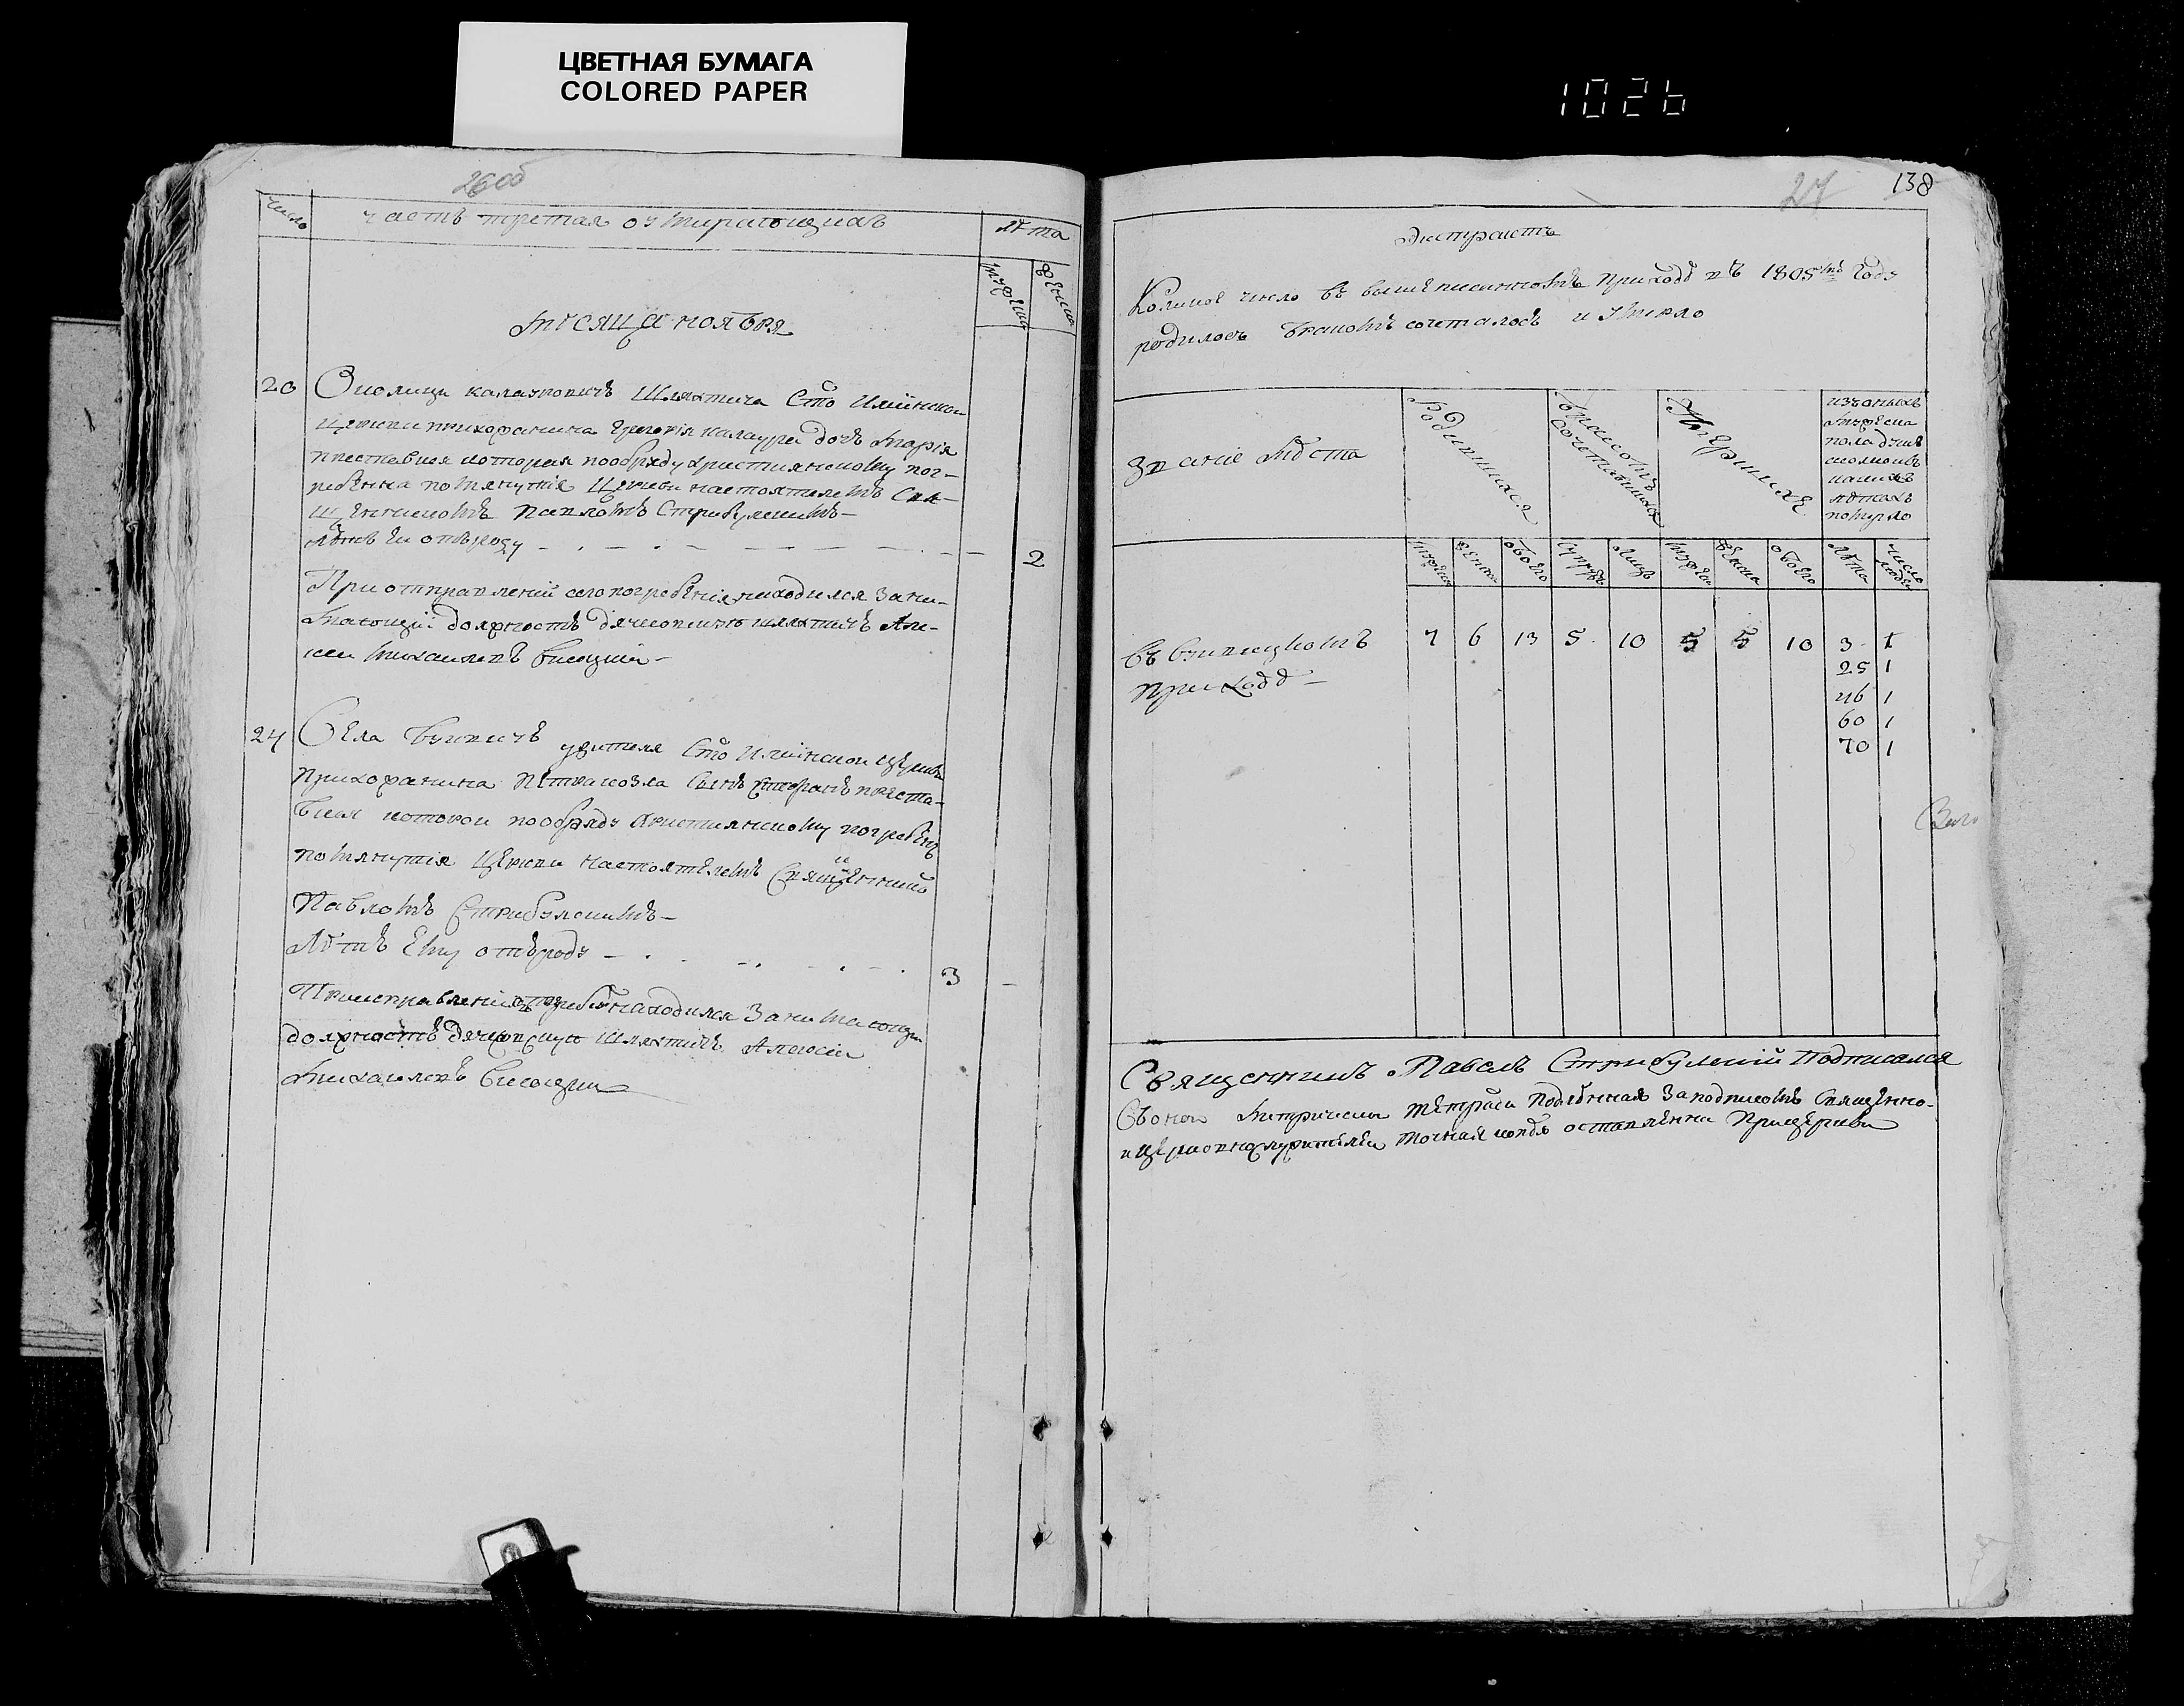 ЦВЕТНАЯ БУМАГА
COLORED PAPER
1026
26об
число
часть третая о умирающихъ
лѣта
мужеска
женска
Мѣсяца ноября
20
Околици шляхтича Сто Илiинской
церкви прихожанина Григорія дочь Марія
преставися которая по обряду християнскому пог-
ребенна помянутія церкви настоятелемъ Свя-
щенникомъ Павломъ Стрибулскимъ
Лѣтъ ей отъ роду
2
При отправленіи сего погребенія находился Зани-
мающій должность дячковскую шляхтичъ Але-
ксей Михаиловъ Висоцкій
24
Села жителя Сто Илiинской церкви
Прихожанина Петра Козла Сынъ Стефанъ преста-
вися которой по обряду християнскому погребенъ
помянутія церкви настоятелемъ Священникомъ
Павломъ Стрибулскимъ
Лѣтъ ему отъ роду
3
находился Занимающи
должность дячковскую шляхтичъ Алексій
Михаиловъ Висоцки
27
138
Экстрактъ
Коликое число въ вышеписанномъ приходѣ въ 1805мъ году
родилось бракомъ сочеталось и умерло
Званіе мѣста
Родившихся
Бракомъ сочетавшихся
Умершихъ
изъ оныхъ
мужеска
пола душъ
сколко въ
какихъ
лѣтахъ
померло
мужеска
женска
обоего
супружъ
лицъ
мужеска
женска
обоего
лѣта
число людей
въ
приходѣ
7 6 13 5 10 5 5 10 3 1
25 1
46 1
60 1
70 1
Священникъ Павелъ Стрибулскій подписался
Съ оной метрически тетради подлѣнная за подписомъ священно-
и церковнослужителей точная копія оставленна при церкви